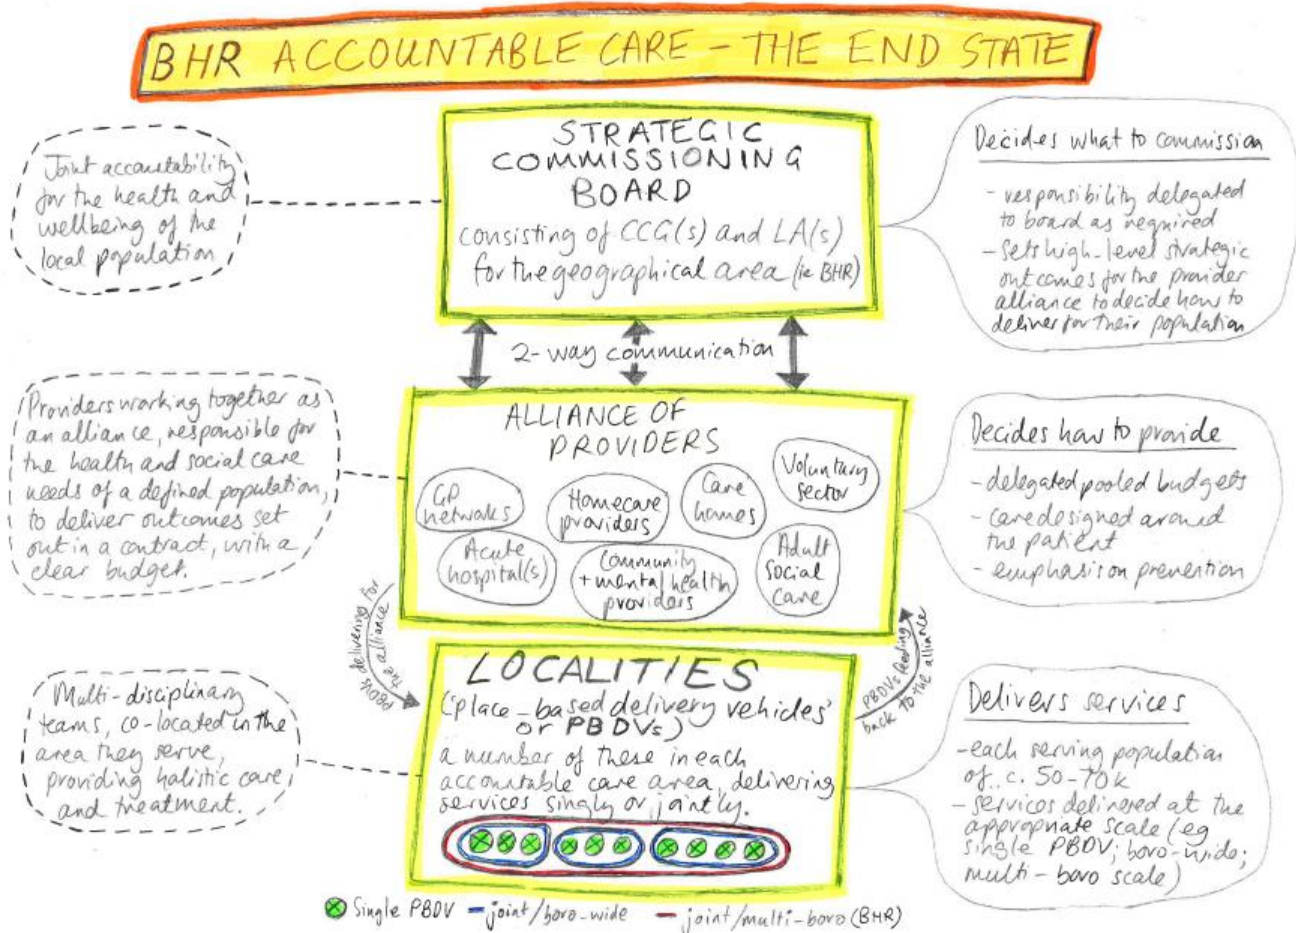 BHR ACCOUNTABLE CARE - THE END STATE
Joint accountability
for the health and
wellbeing of the
local population
STRATEGIC
COMMISSIONING
BOARD
consisting of CCG(s) and LA(s)
for the geographical area (ie BHR)
Decides what to commission
- responsibility delegated
to board as required
- sets high-level strategic
outcomes for the provider
alliance to decide how to
deliver for their population
2-way communication
Providers working together as
an alliance, responsible for
the health and social care
needs of a defined population,
to deliver outcomes set
out in a contract, with a
clear budget.
ALLIANCE OF
PROVIDERS
GP
networks
Homecare
providers
Care
homes
Voluntary
sector
Acute
hospital(s)
Community
+ mental health
providers
Adult
social
care
Decides how to provide
- delegated pooled budgets
- care designed around
the patient
- emphasis on prevention
PBDVs delivering for
the alliance
PBDVs feeding
back to the alliance
Multi-disciplinary
teams, co-located in the
area they serve,
providing holistic care
and treatment.
LOCALITIES
('place-based delivery vehicles'
or PBDVs)
a number of these in each
accountable care area, delivering
services singly or jointly.
Delivers services
- each serving population
of c. 50-70k
- services delivered at the
appropriate scale (eg
single PBDV; boro-wide;
multi-boro scale)
Single PBDV
joint/boro-wide
joint/multi-boro (BHR)